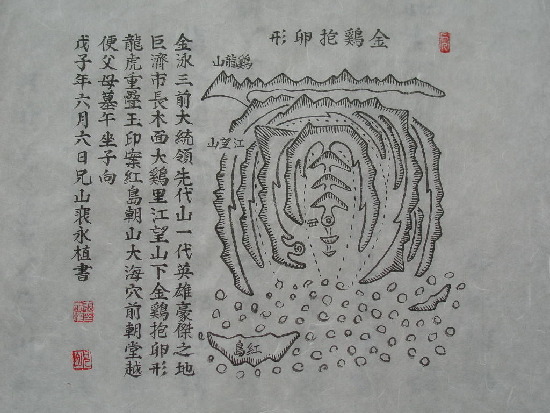 金鷄抱卵形
鷄龍山
江望山
紅島
金泳三前大統領先代山一代英雄豪傑之地
巨濟市長木面大鷄里江望山下金鷄抱卵形
龍虎重疊玉印案紅島朝山大海穴前朝堂越
便父母墓午坐子向
戊子年六月六日兄山裵永植書